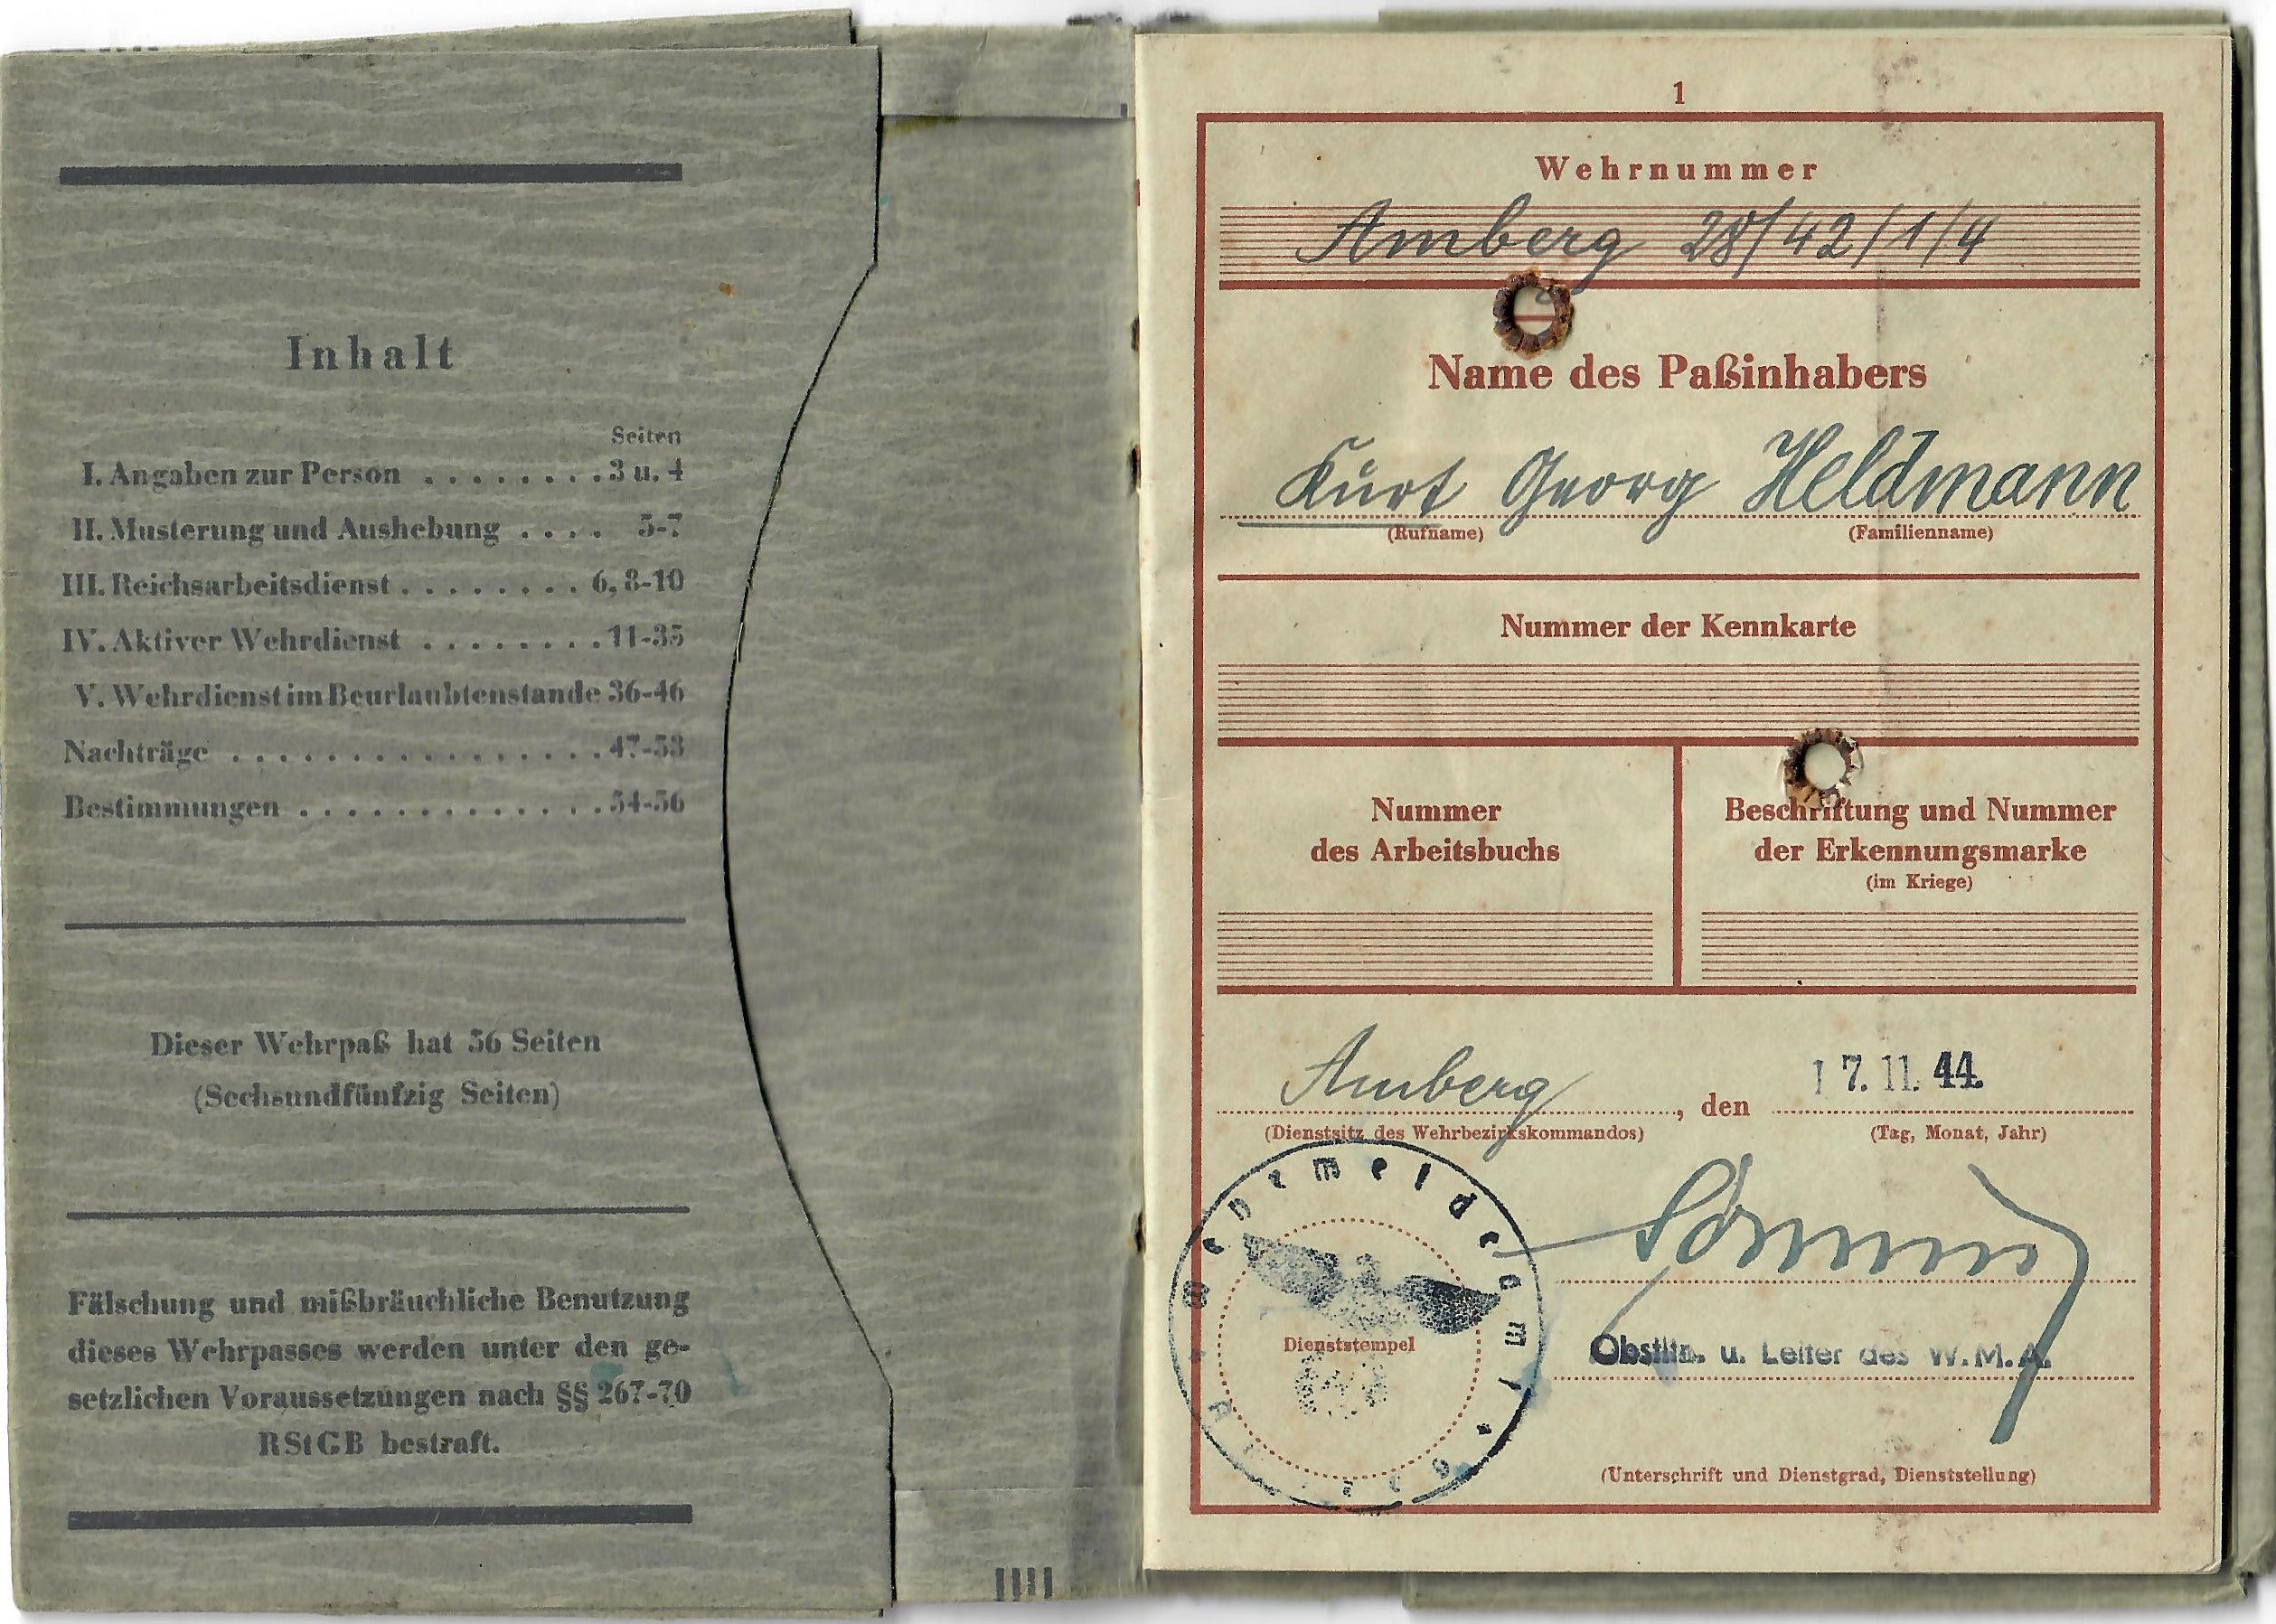 Inhalt
Seiten
I. Angaben zur Person . . . . . . . . 3 u. 4
II. Musterung und Aushebung . . . . 5-7
III. Reichsarbeitsdienst . . . . . . . . 6, 8-10
IV. Aktiver Wehrdienst . . . . . . . . 11-35
V. Wehrdienst im Beurlaubtenstande 36-46
Nachträge . . . . . . . . . . . . . . . . 47-53
Bestimmungen . . . . . . . . . . . . . 54-56
Dieser Wehrpaß hat 56 Seiten
(Sechsundfünfzig Seiten)
Fälschung und mißbräuchliche Benutzung
dieses Wehrpasses werden unter den ge-
setzlichen Voraussetzungen nach §§ 267-70
RStGB bestraft.
1
Wehrnummer
Amberg 28/42/1/4
Name des Paßinhabers
Kurt Georg Heldmann
(Rufname) (Familienname)
Nummer der Kennkarte
Nummer
des Arbeitsbuchs
Beschriftung und Nummer
der Erkennungsmarke
(im Kriege)
Amberg, den 17. 11. 44.
(Dienstsitz des Wehrbezirkskommandos) (Tag, Monat, Jahr)
Wehrmeldeamt
Dienststempel
Obstltn. u. Leiter des W.M.A.
(Unterschrift und Dienstgrad, Dienststellung)